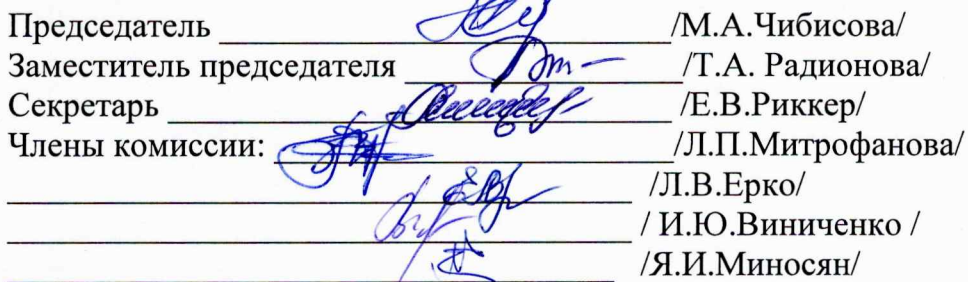 Председатель /М.А.Чибисова/
Заместитель председателя /Т.А. Радионова/
Секретарь /Е.В.Риккер/
Члены комиссии: /Л.П.Митрофанова/
/Л.В.Ерко/
/ И.Ю.Виниченко /
/Я.И.Миносян/